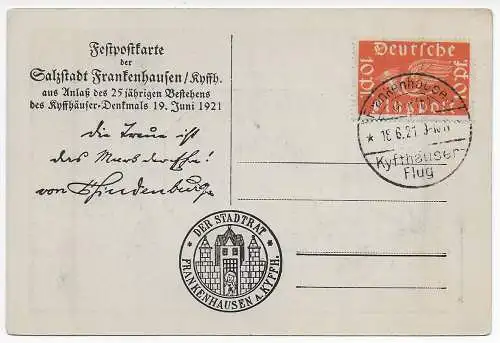 Festpostkarte
der
Salzstadt Frankenhausen/Kyffh.
aus Anlaß des 25 jährigen Bestehens
des Kyffhäuser-Denkmals 19. Juni 1921
Die Treue ist
das Mark der Ehre!
von Hindenburg
DER STADTRAT
FRANKENHAUSEN A. KYFFH.
Deutsche
10 Pf
10 Pf
Frankenhausen
* 18.6.21
Kyffhäuser
Flug